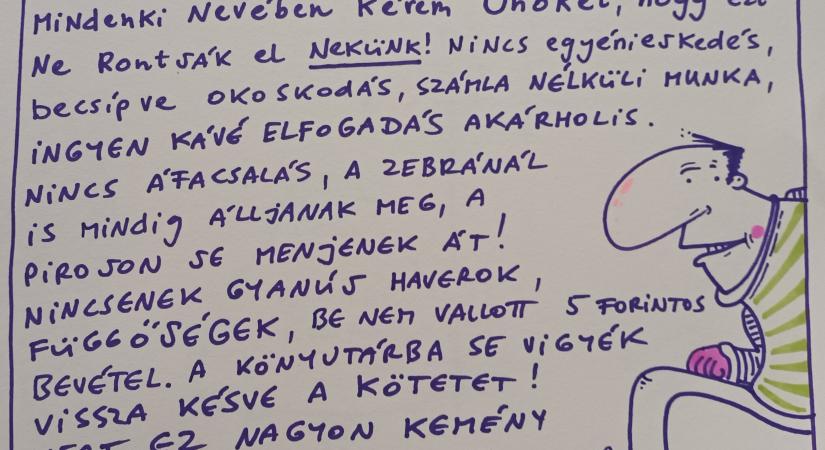 MiNdeNKi NevébeN KéREM ÖNÖKet, hogy ezt
Ne RontSÁK el NeKÜNK! NiNCS egyénieskedés,
becsípve OKOSKODÁS, SZÁMLA NÉLKÜLI MUNKA,
iNGYEN KÁVÉ ELFOGADÁS AKÁRHOLIS.
NiNCS ÁFACSALÁS, A ZEBRÁNÁL
iS MiNDig ÁLLJANAK MEG, A
PIROSON SE MENJENEK ÁT!
NINCSENEK GYANÚS HAVEROK,
FÜGGŐSÉGEK, BE NEM VALLOTT 5 FORINTOS
BEVÉTEL. A KÖNYVTÁRBA SE VIGYÉK
VISSZA KÉSVE A KÖTETET!
MERT EZ NAGYON KEMÉNY